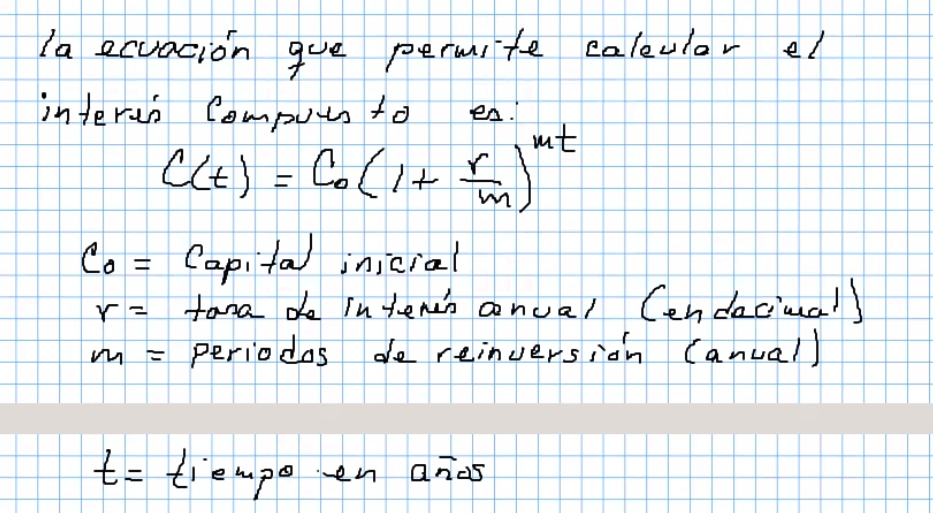 la ecuación que permite calcular el
interés compuesto es:
C(t) = C₀(1 + r/m)^mt
C₀ = Capital inicial
r = tasa de interés anual (en decimal)
m = periodos de reinversión (anual)
t = tiempo en años